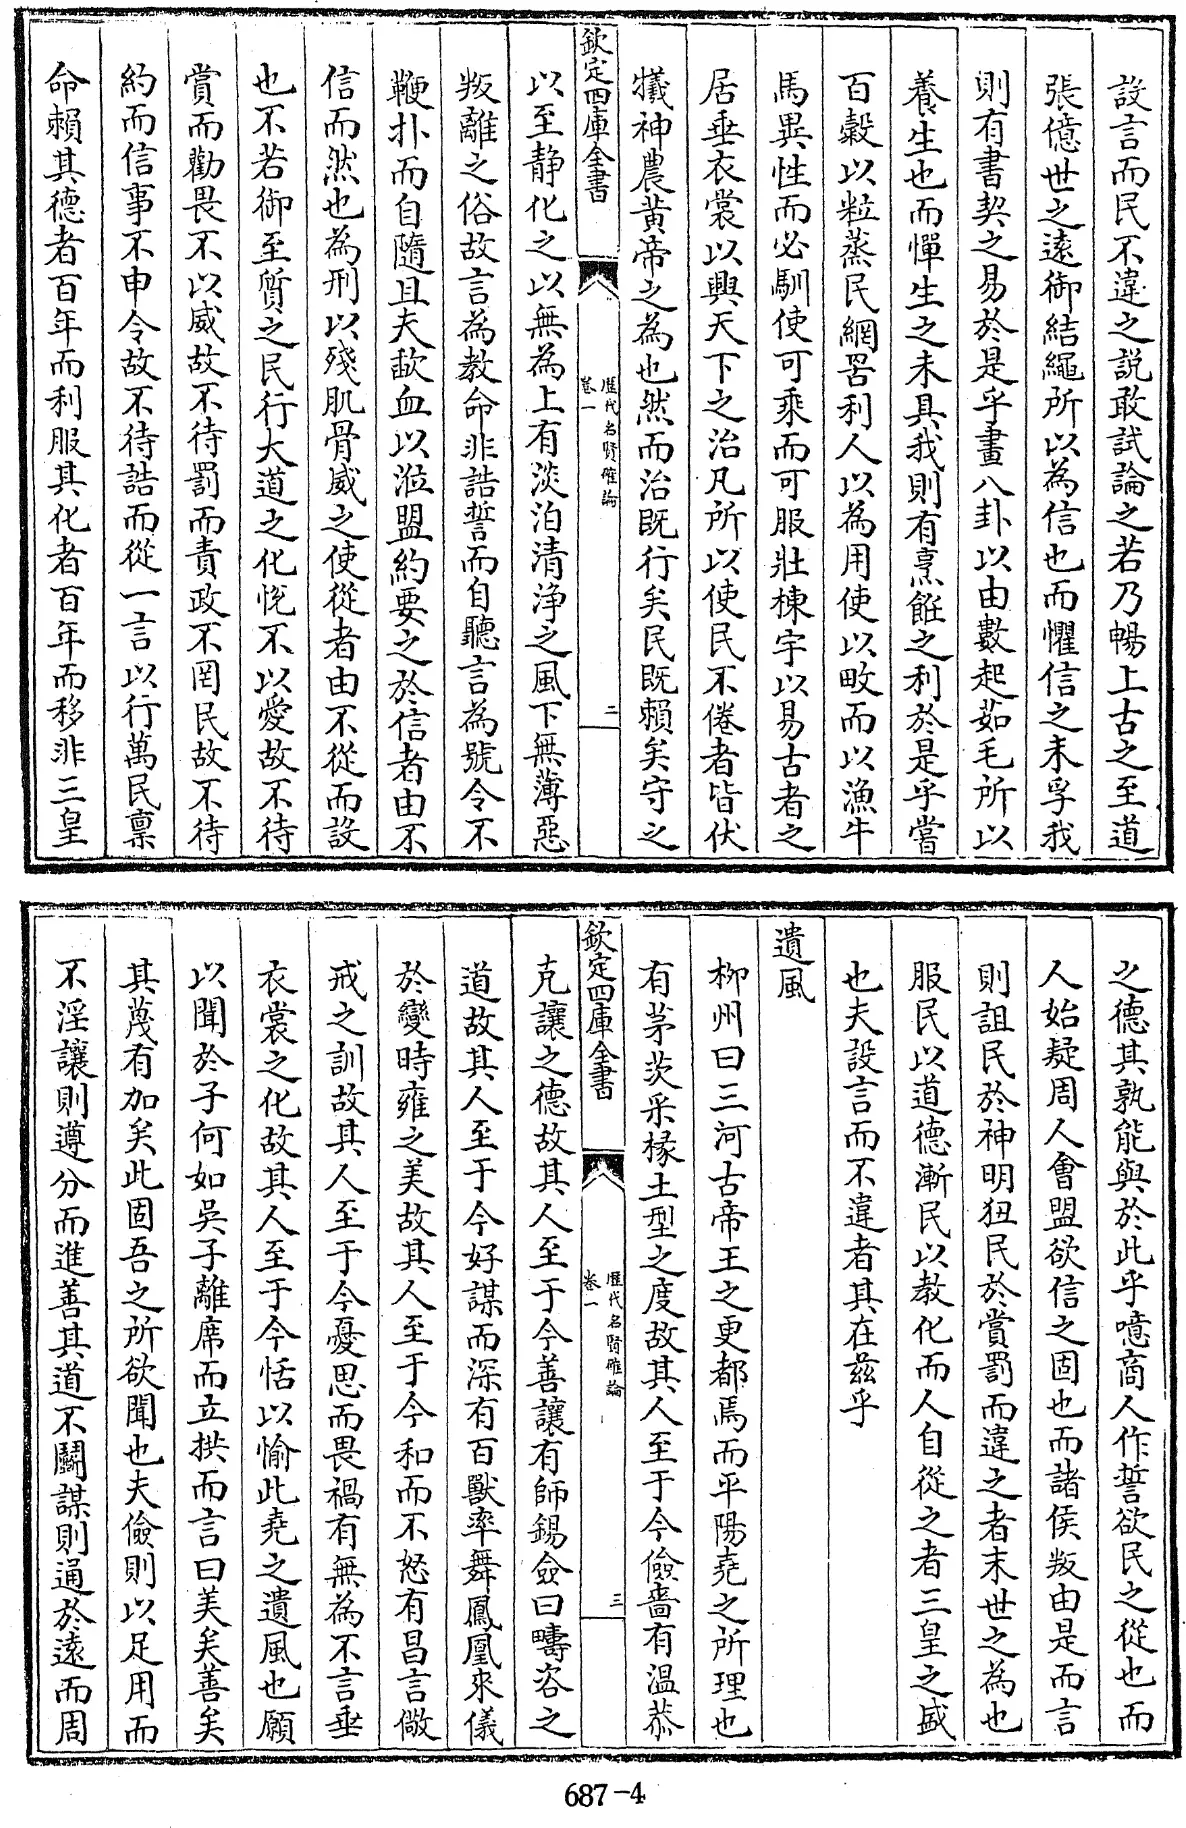 設言而民不違之說敢試論之若乃暢上古之至道
張億世之遠御結繩所以為信也而懼信之未孚我
則有書契之易於是乎畫八卦以由數起茹毛所以
養生也而憚生之未具我則有烹飪之利於是乎嘗
百糓以粒蒸民網罟利人以為用使以畋而以漁牛
馬異性而必馴使可乘而可服壯棟宇以易古者之
居垂衣裳以興天下之治凡所以使民不倦者皆伏
犧神農黄帝之為也然而治既行矣民既賴矣守之
欽定四庫全書
歴代名賢確論
卷一
二
以至静化之以無為上有淡泊清浄之風下無薄惡
叛離之俗故言為教命非誥誓而自聽言為號令不
鞭扑而自隨且夫歃血以涖盟約要之於信者由不
信而然也為刑以殘肌骨威之使從者由不從而設
也不若御至質之民行大道之化悦不以愛故不待
賞而勸畏不以威故不待罰而責政不罔民故不待
約而信事不申令故不待誥而從一言以行萬民禀
命賴其德者百年而利服其化者百年而移非三皇
之德其孰能與於此乎噫商人作誓欲民之從也而
人始疑周人會盟欲信之固也而諸侯叛由是而言
則詛民於神明狃民於賞罰而違之者末世之為也
服民以道德漸民以教化而人自從之者三皇之盛
也夫設言而不違者其在兹乎
遺風
柳州曰三河古帝王之更都焉而平陽堯之所理也
有茅茨采椽土型之度故其人至于今儉嗇有温恭
欽定四庫全書
歴代名賢確論
卷一
三
克讓之德故其人至于今善讓有師錫僉曰疇咨之
道故其人至于今好謀而深有百獸率舞鳳凰來儀
於變時雍之美故其人至于今和而不怒有昌言儆
戒之訓故其人至于今憂思而畏禍有無為不言垂
衣裳之化故其人至于今恬以愉此堯之遺風也願
以聞於子何如吳子離席而立拱而言曰美矣善矣
其蔑有加矣此固吾之所欲聞也夫儉則以足用而
不淫讓則遵分而進善其道不鬭謀則通於遠而周
687-4